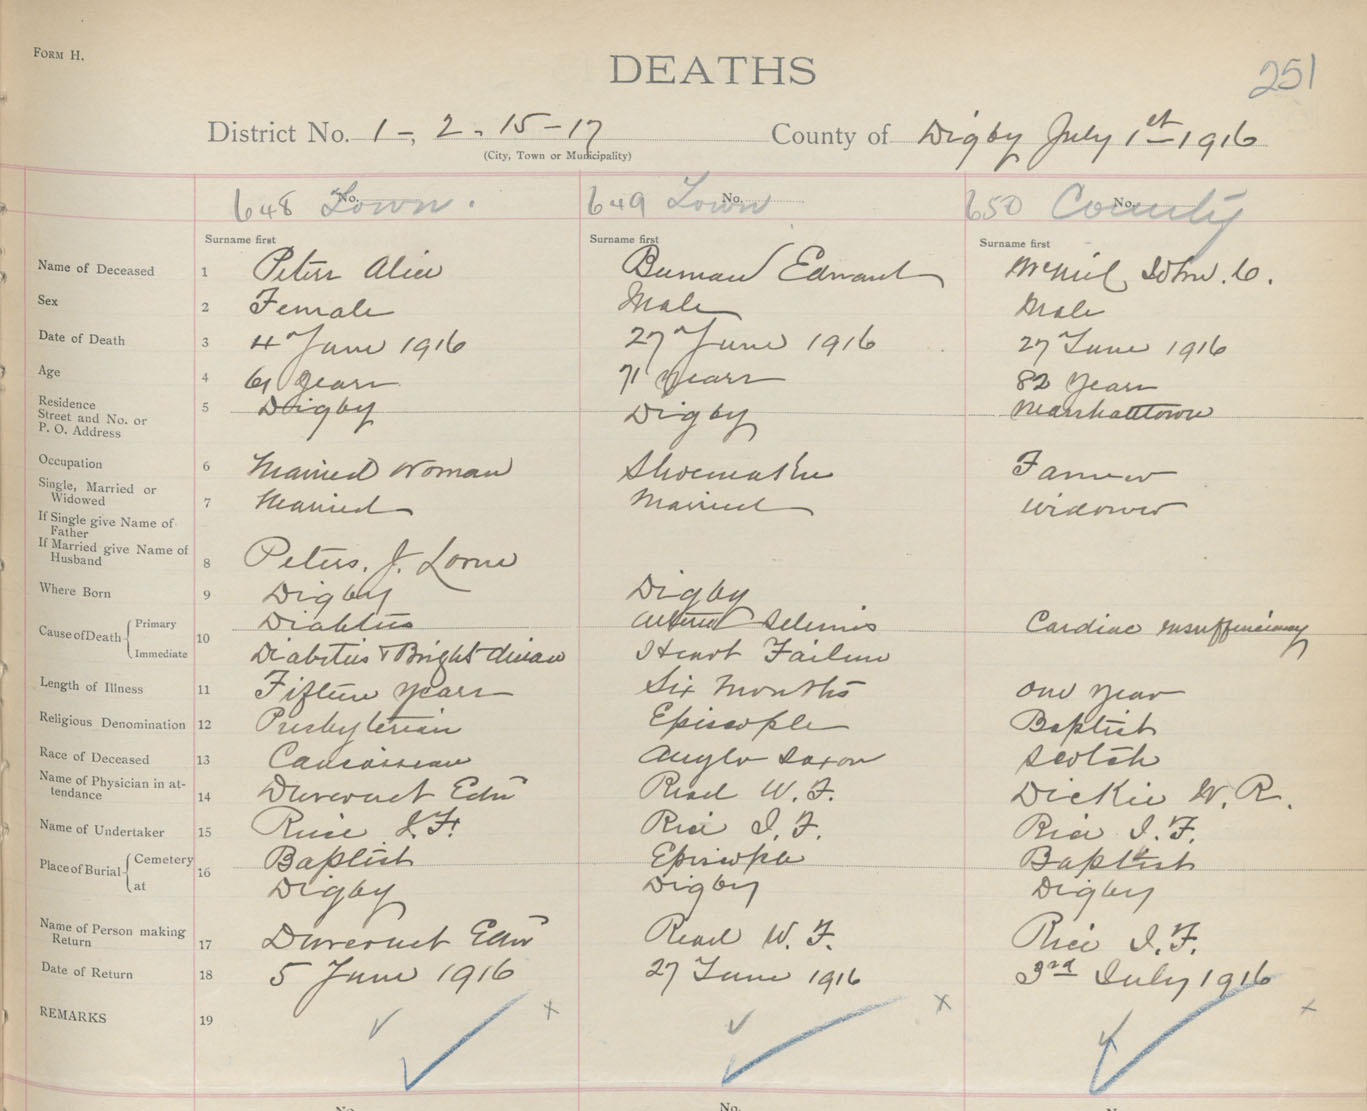 FORM H.
DEATHS
251
District No. 1-, 2-15-17 County of Digby July 1st 1916
(City, Town or Municipality)
648 No. Town. 649 No. Town 650 No. County
Surname first Surname first Surname first
Name of Deceased 1 Peters Alice Edward McNiel John. C.
Sex 2 Female Male Male
Date of Death 3 4" June 1916 27" June 1916 27 June 1916
Age 4 61 years 71 years 82 years
Residence
Street and No. or
P. O. Address 5 Digby Digby Marshalltown
Occupation 6 Married Woman Shoemaker Farmer
Single, Married or
Widowed 7 Married Married Widower
If Single give Name of
Father
If Married give Name of
Husband 8 Peters. J. Lorne
Where Born 9 Digby Digby
Cause of Death Primary 10 Diabetis Cardiac insufficiency
Immediate Diabetis & Bright disease Heart Failure
Length of Illness 11 Fifteen years Six Months one year
Religious Denomination 12 Presbyterian Episcople Baptist
Race of Deceased 13 Caucassean Anglo Saxon Scotch
Name of Physician in at-
tendance 14 Duvernet Edw Read W. F. Dickie W. R.
Name of Undertaker 15 Rice I. F. Rice I. F. Rice I. F.
Place of Burial Cemetery 16 Baptist Episcople Baptist
at Digby Digby Digby
Name of Person making
Return 17 Duvernet Edw Read W. F. Rice I. F.
Date of Return 18 5 June 1916 27 June 1916 3rd July 1916
REMARKS 19
No. No. No.